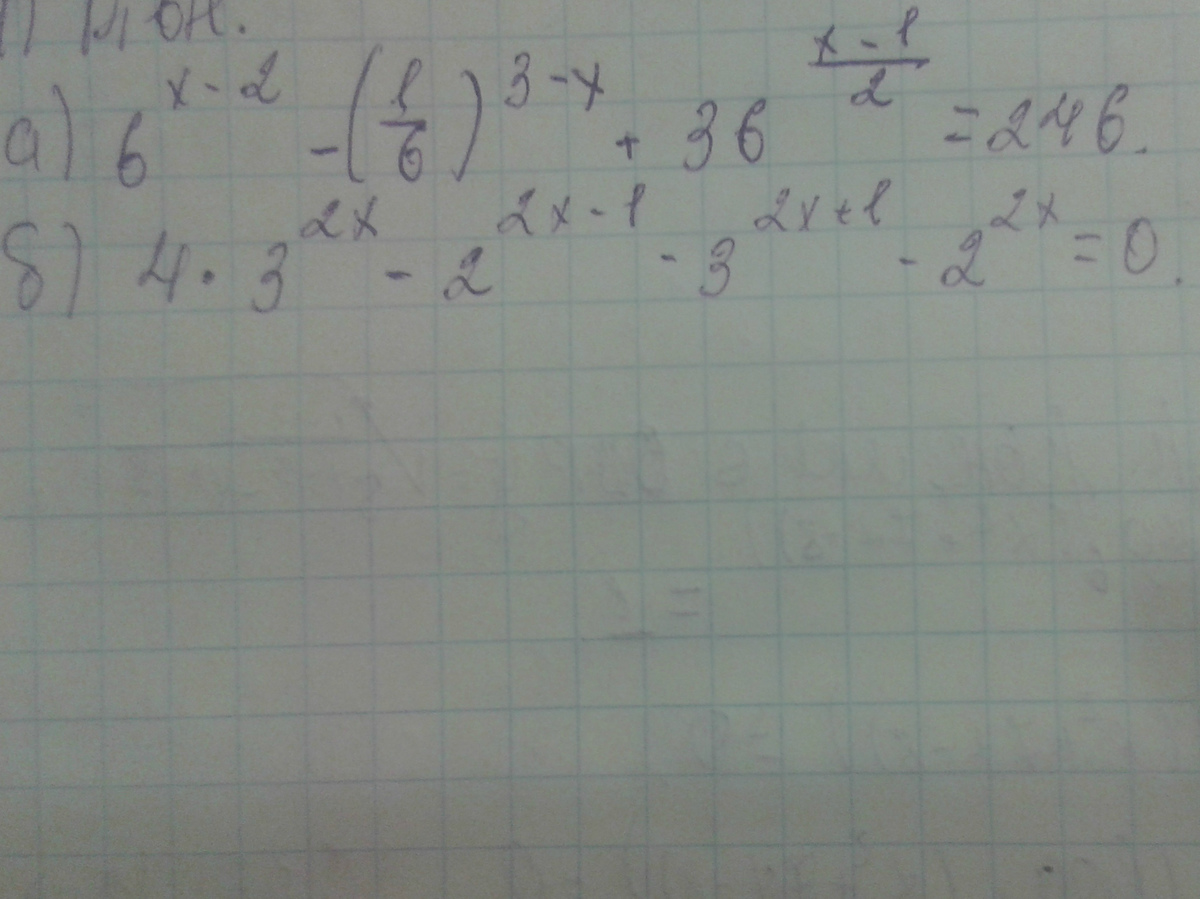 а) 6^(x-2) - (1/6)^(3-x) + 36^((x-1)/2) = 246.
б) 4 · 3^(2x) - 2^(2x-1) - 3^(2x+1) - 2^(2x) = 0.